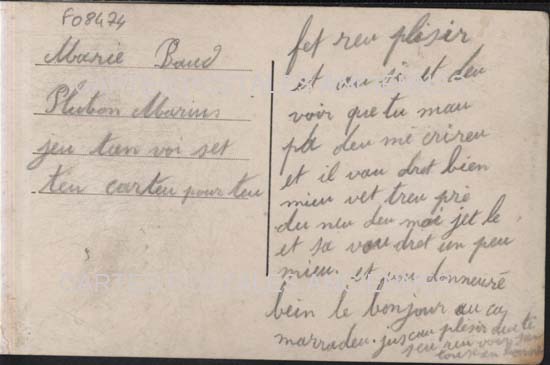 F08474
Marie Baud
Plubon Marius
jeu tan voi set
teu carteu pour teu
fet reu plisir
et au si et deu
voir que tu mau
pa deu mé crireu
et il vau dret bien
mieu vet treu pré
du neu deu moi jet le
et sa vou dret un peu
mieu. et donneuré
bein le bonjour au ca
marradeu. juscau plésir deu te